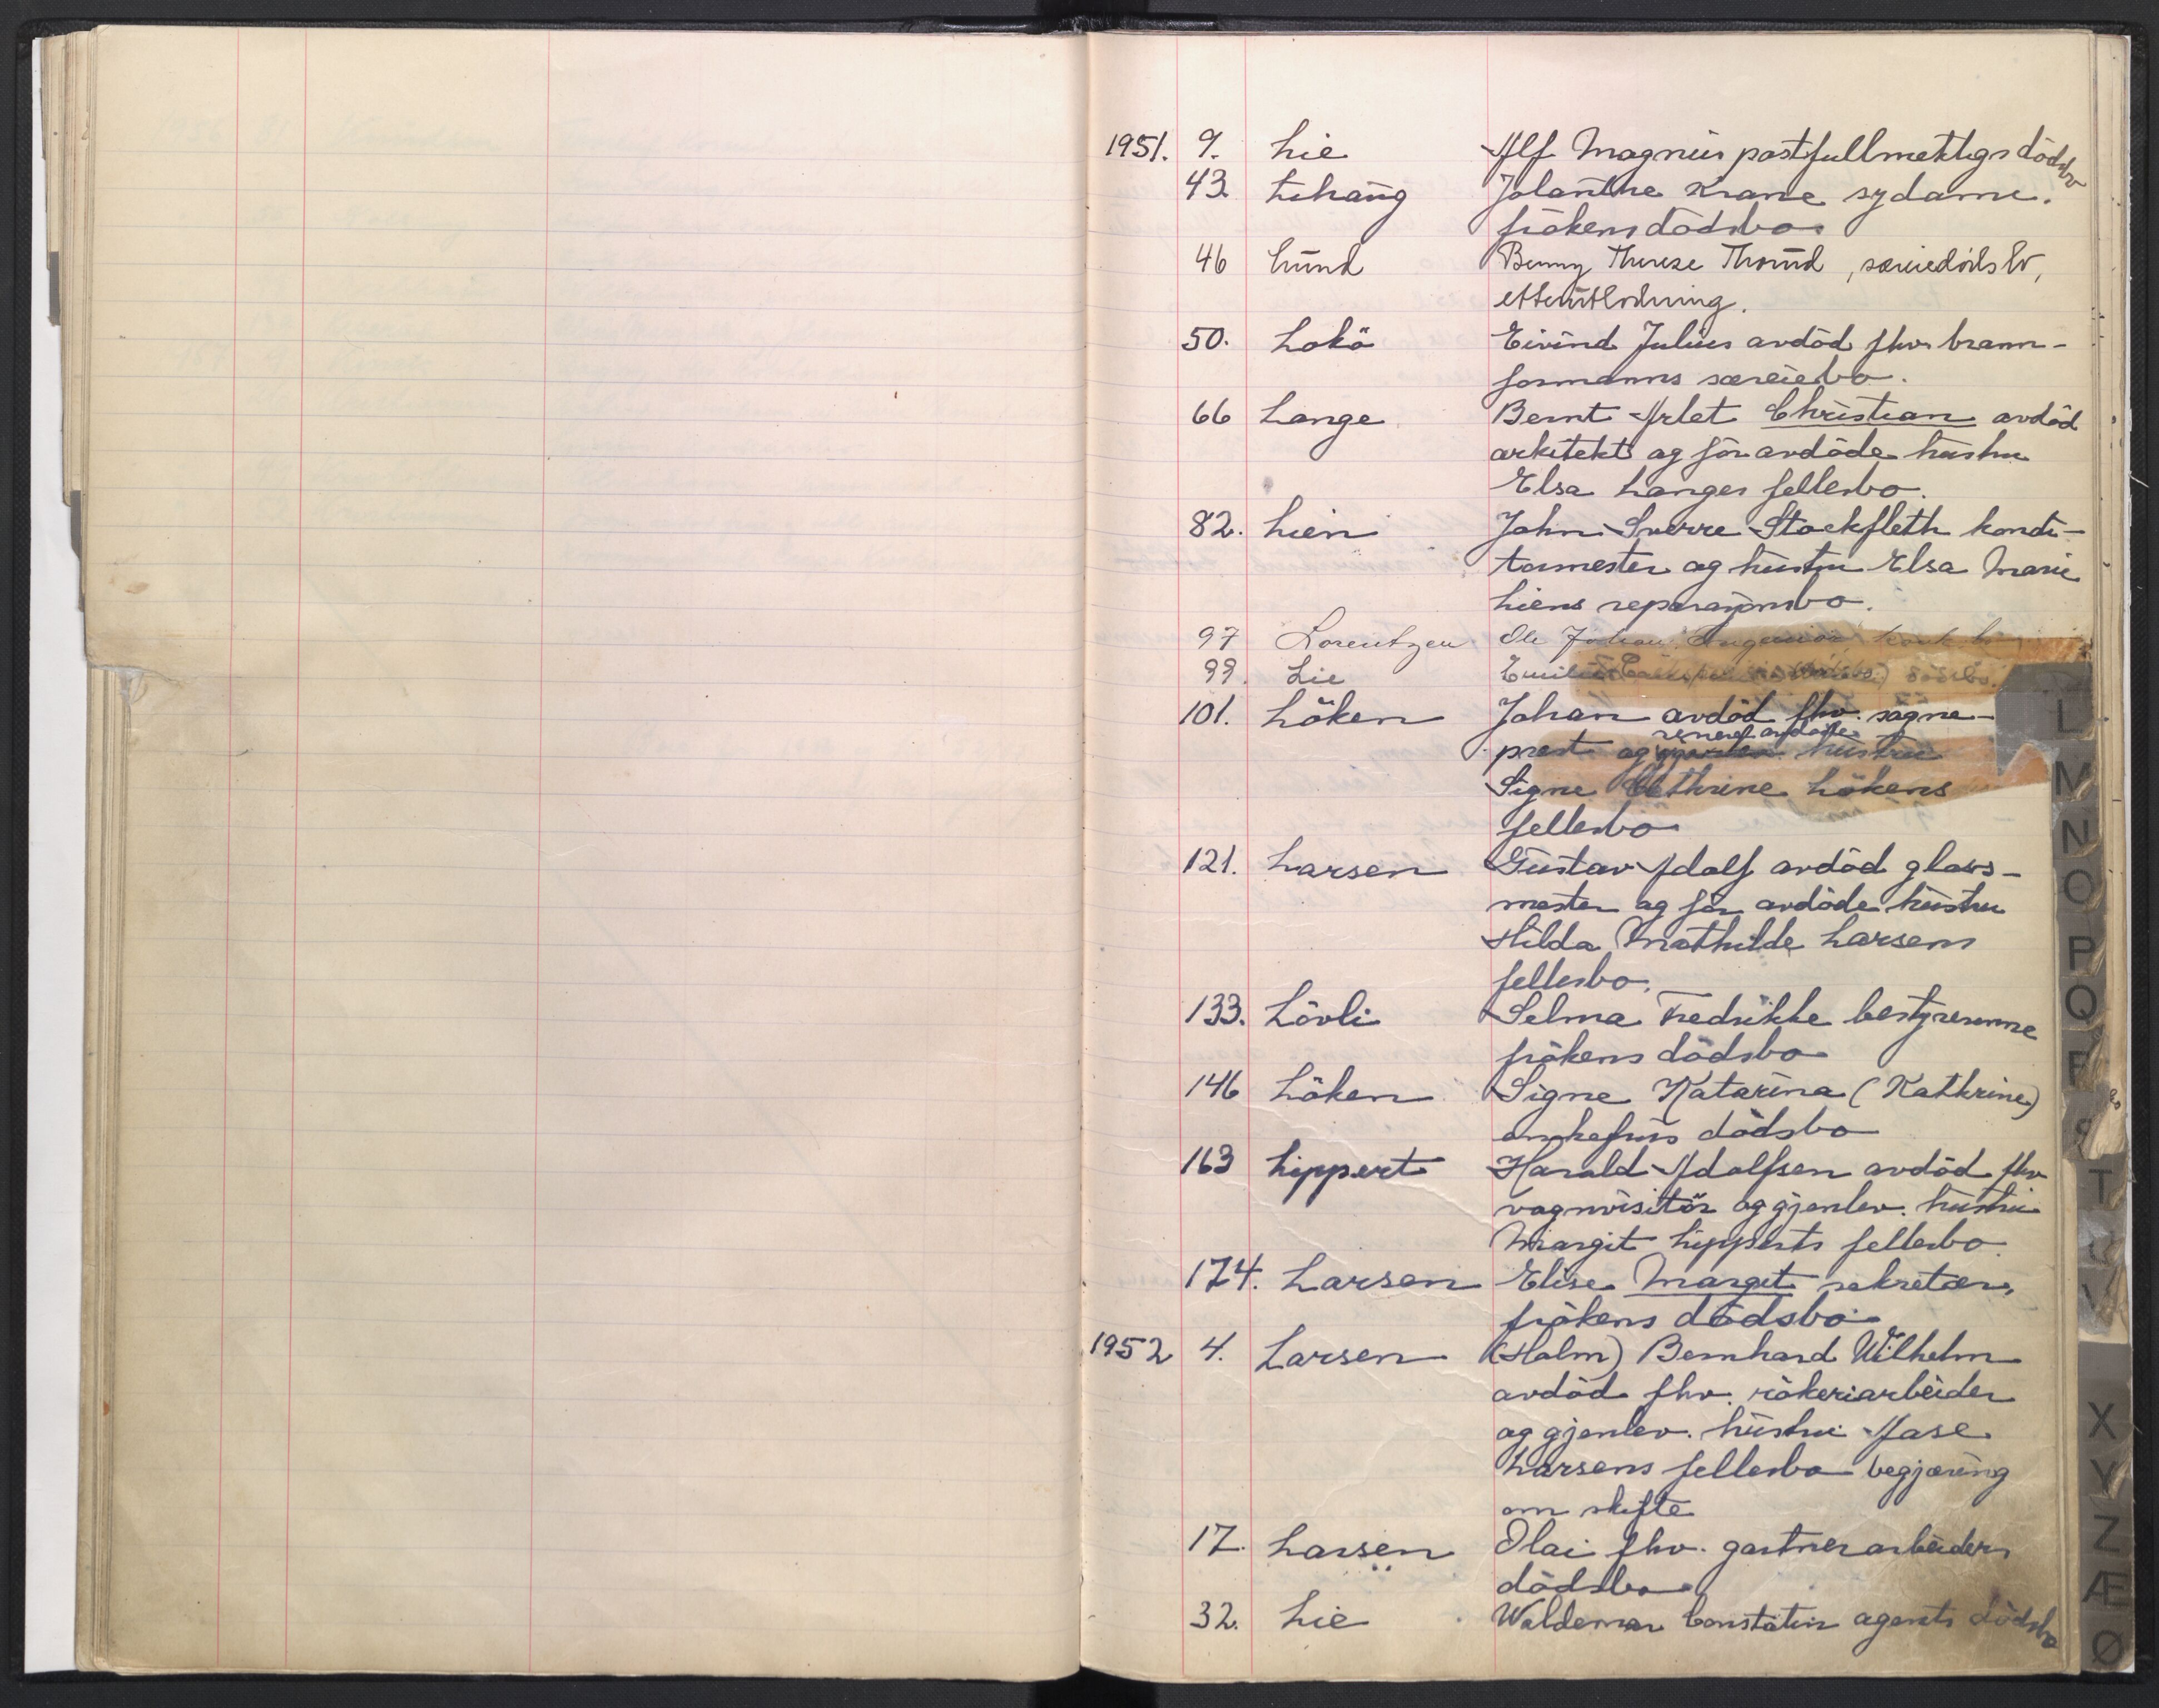 1951. 9. Lie Alf Magnus postfullmektigs dödsbo
43 Lihaug Jolanthe Krane sydame.
frökens dödsbo
46 Lund Benny Therese Thorud, særeiedödsbo,
etterutlodning.
50. Lokö Eivind Julius avdöd fhv. brann-
formanns særeiebo.
66 Lange Bernt Arlet Christian avdöd
arkitekt og för avdöde hustru
Elsa Langes fellesbo.
82. Lien John Sverre Stockfleth kondi-
tormester og hustru Elsa Marie
Liens reparasjonsbo.
97 Lorentzen Ole Johan Ingeniör konk.bo
99. Lie dödsbo.
101. Löken Johan avdöd fhv. sogne-
prest og senere avdöde hustru
Signe Cathrine Lökens
fellesbo
121. Larsen Gustav Adolf avdöd glass-
mester og för avdöde hustru
Hilda Mathilde Larsens
fellesbo.
133. Lövli Selma Fredrikke bestyrerinne
frökens dödsbo
146 Löken Signe Katarina (Kathrine)
enkefrus dödsbo
163 Lippert Harald Adolfsen avdöd fhv
vognvisitör og gjenlev. hustru
Margit Lipperts fellesbo.
174. Larsen Elise Margit sekretær,
frökens dödsbo
1952 4. Larsen (Holm) Bernhard Wilhelm
avdöd fhv. rökeriarbeider
og gjenlev. hustru Aase
Larsens fellesbo begjæring
om skifte
17. Larsen Olai fhv. gartnerarbeiders
dödsbo
32. Lie Waldemar Constatin agents dödsbo
L
M
N
O
P
Q
R
S
T
U
V
X
Y
Z
Æ
Ø